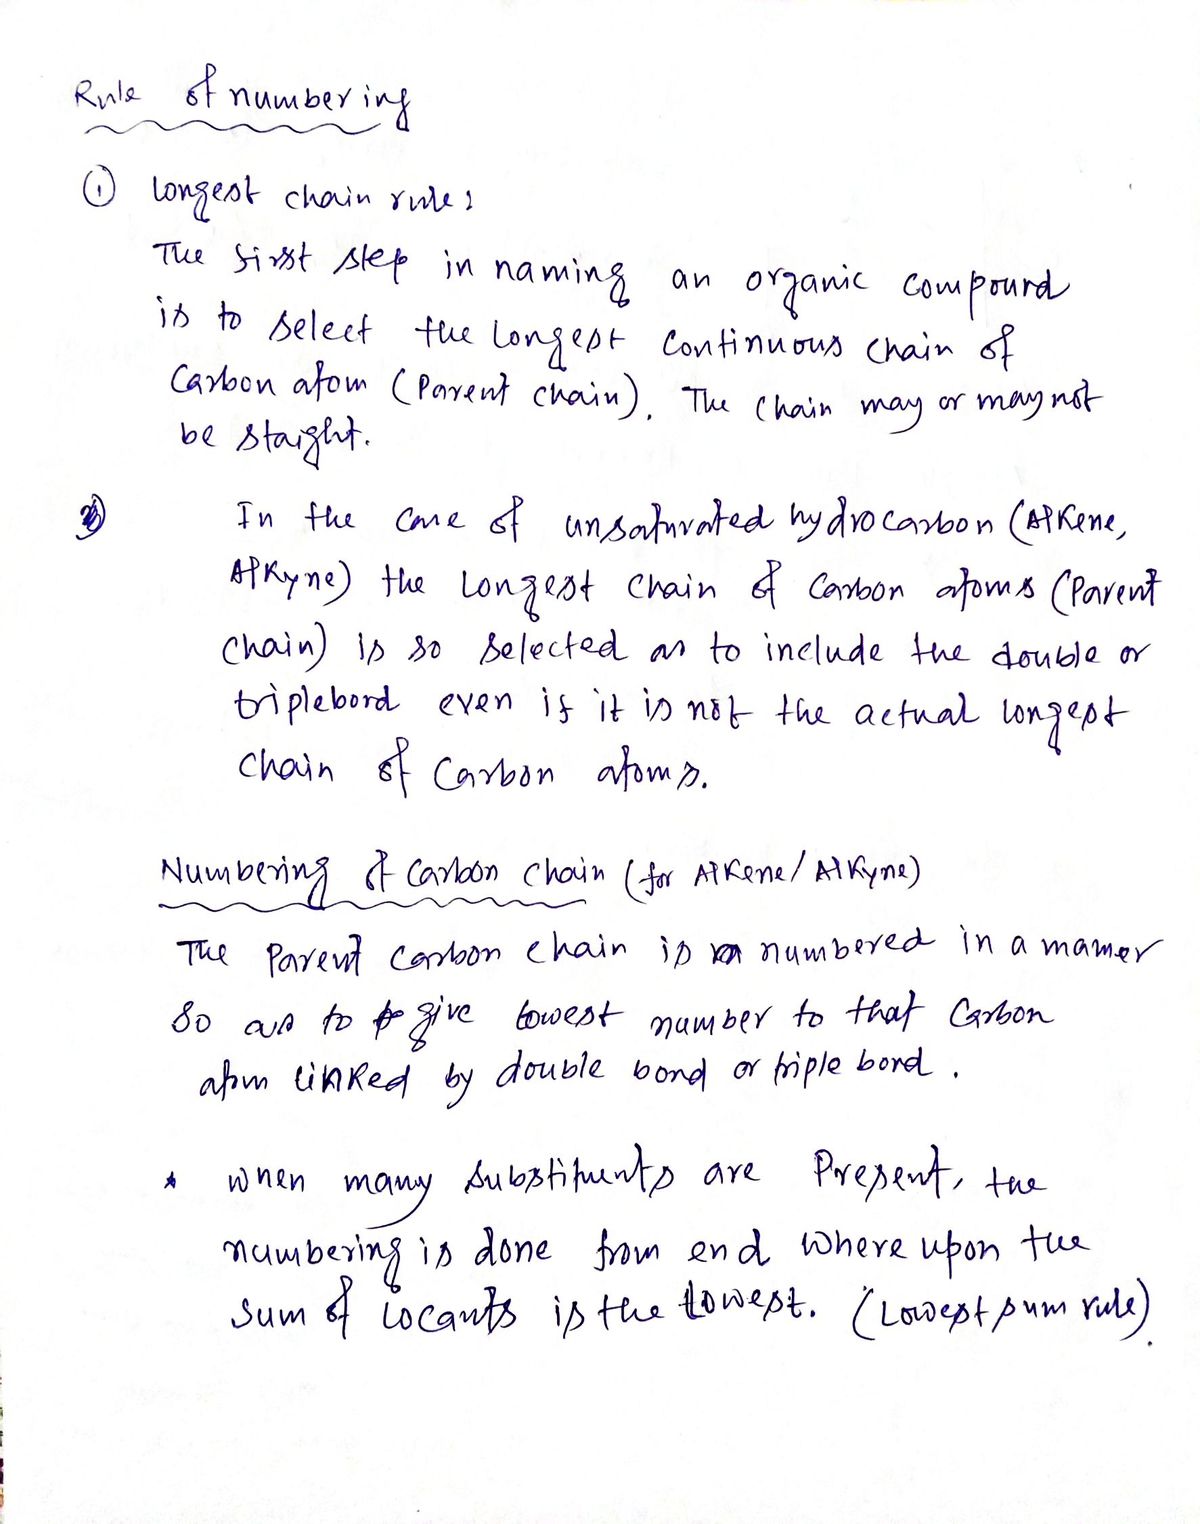 Rule of numbering
① Longest chain rule:
The first step in naming an organic compound
is to select the longest continuous chain of
Carbon atom (Parent chain). The chain may or may not
be staight.
In the case of unsaturated hydrocarbon (Alkene,
Alkyne) the longest chain of Carbon atoms (Parent
chain) is so selected as to include the double or
triplebond even if it is not the actual longest
chain of Carbon atoms.
Numbering of Carbon chain (for Alkene/Alkyne)
The Parent Carbon chain is numbered in a manner
so as to give lowest number to that Carbon
atom linked by double bond or triple bond.
* When many substituents are Present, the
numbering is done from end where upon the
sum of locants is the lowest. (Lowest sum rule).